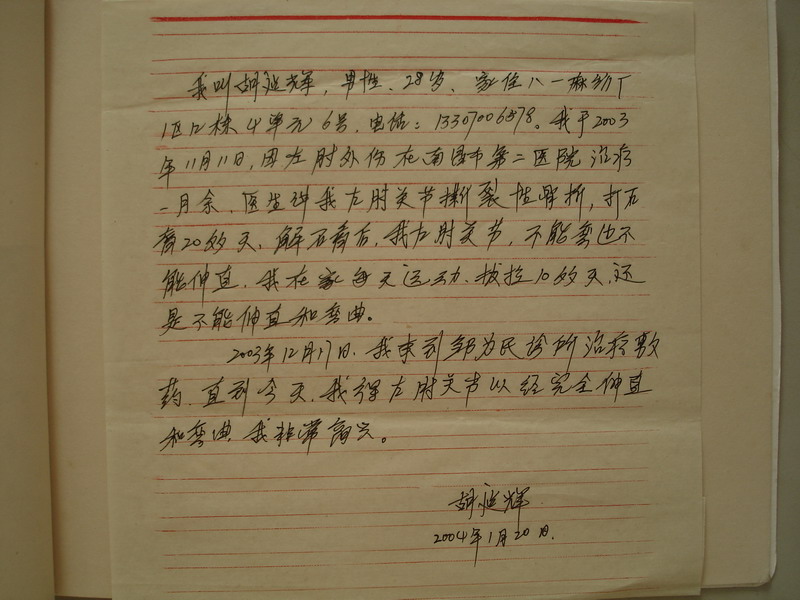 我叫胡延辉，男性、28岁、家住八一麻纺厂
1区12栋4单元6号，电话：13307006578。我于2003
年11月11日，因左肘外伤在南昌市第二医院治疗
一月余，医生讲我左肘关节撕裂性骨折，打石
膏20多天，解石膏后，我左肘关节，不能弯也不
能伸直，我在家每天运动、拔拉10多天，还
是不能伸直和弯曲。
2003年12月17日，我来到邹为民诊所治疗敷
药，直到今天，我得左肘关节以经完全伸直
和弯曲，我非常高兴。
胡延辉
2004年1月20日.